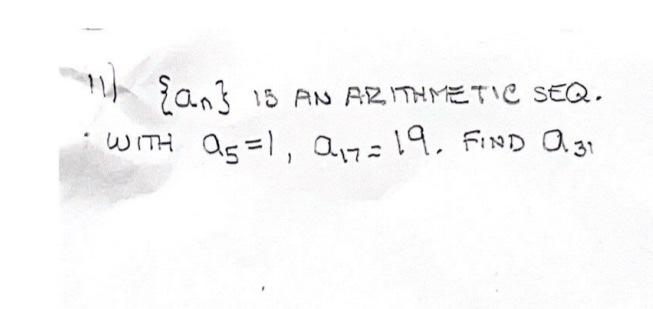 11) {an} IS AN ARITHMETIC SEQ.
WITH a5=1, a17=19. FIND a31